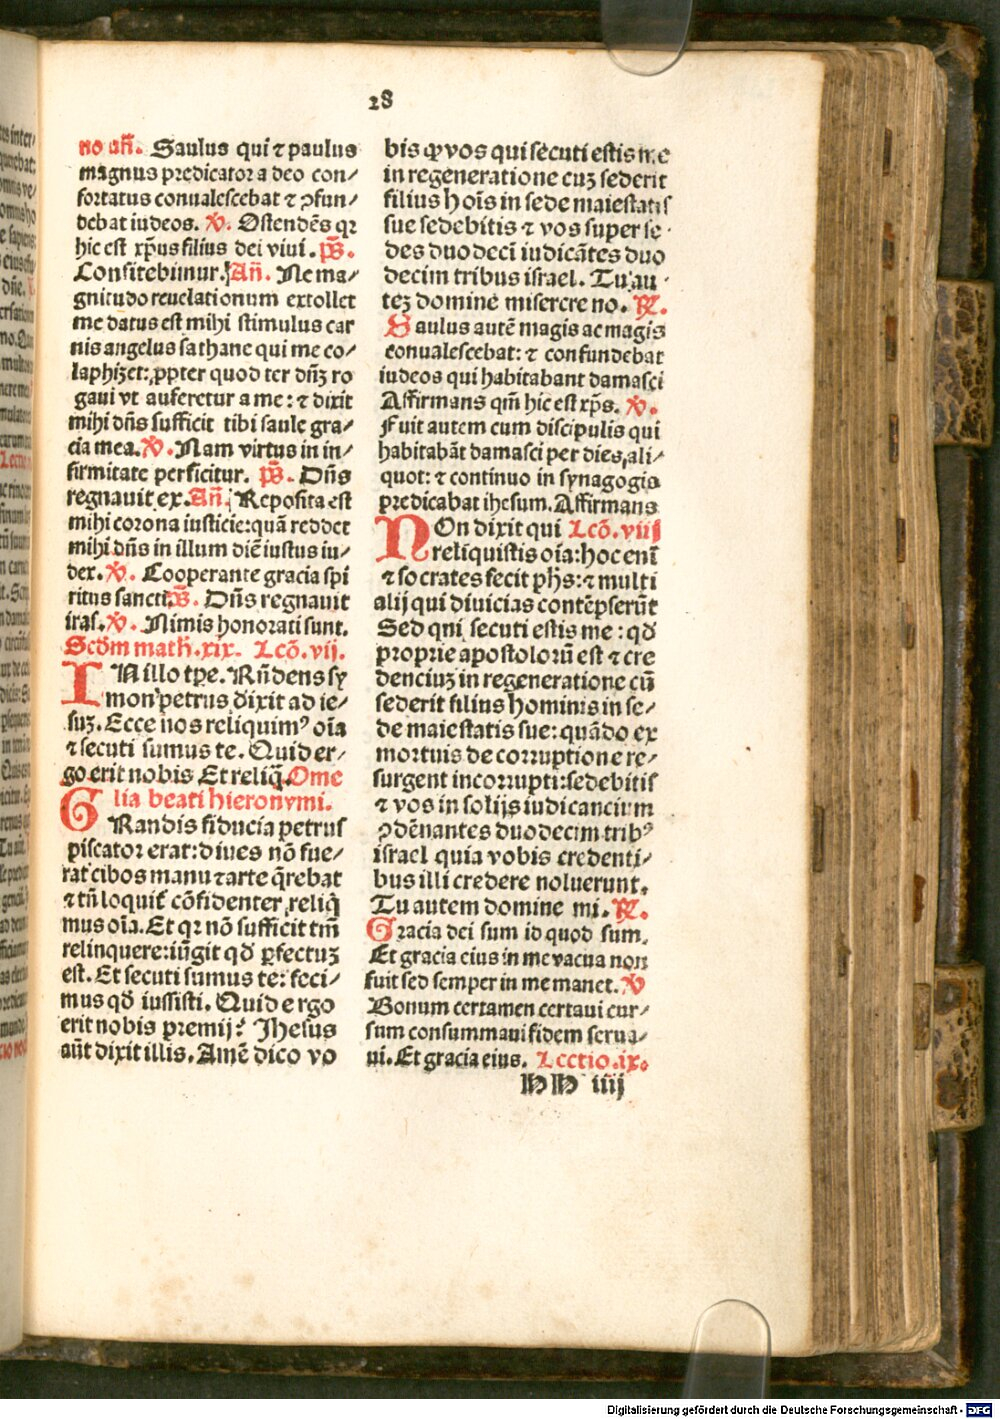 28
no an̄. Saulus qui ⁊ paulus
magnus predicator a deo con/
fortatus conualescebat ⁊ ꝓfun/
debat iudeos. ꝟ. Ostendēs qꝛ
hic est xp̄us filius dei viui. p̄s.
Confitebimur. An̄. Ne ma/
gnitudo reuelationum extollet
me datus est mihi stimulus car
nis angelus sathane qui me co/
laphizet: ꝓpter quod ter dn̄ꝫ ro
gaui vt auferetur a me: ⁊ dixit
mihi dn̄s sufficit tibi saule gra/
cia mea. ꝟ. Nam virtus in in/
firmitate perficitur. p̄s. Dn̄s
regnauit ex. An̄. Reposita est
mihi corona iusticie: quā reddet
mihi dn̄s in illum diē iustus iu/
dex. ꝟ. Cooperante gracia spi
ritus sancti. p̄s. Dn̄s regnauit
iras. ꝟ. Nimis honorati sunt.
Scd̄m math̄. xix. Lcō. vij.
IN illo tp̄e. Rn̄dens sy
mon petrus dixit ad ie/
suꝫ. Ecce nos reliquimꝰ oīa
⁊ secuti sumus te. Quid er/
go erit nobis Et reliq̄. Ome
lia beati hieronymi.
GRandis fiducia petrus
piscator erat: diues nō fue/
rat cibos manu ⁊ arte q̄rebat
⁊ tn̄ loquit᷑ cōfidenter reliq̄
mus oīa. Et qꝛ nō sufficit tm̄
relinquere: iūgit qd̄ ꝑfectuꝫ
est. Et secuti sumus te: feci/
mus qd̄ iussisti. Quid ergo
erit nobis premij? Jhesus
aūt dixit illis. Amē dico vo
bis ꝙ vos qui secuti estis me
in regeneratione cuꝫ sederit
filius hoīs in sede maiestatis
sue sedebitis ⁊ vos super se
des duodecī iudicātes duo
decim tribus israel. Tu au
teꝫ domine miserere no. ꝶ.
Saulus autē magis ac magis
conualescebat: ⁊ confundebat
iudeos qui habitabant damasci
Affirmans qm̄ hic est xp̄s. ꝟ.
Fuit autem cum discipulis qui
habitabāt damasci per dies ali/
quot: ⁊ continuo in synagogis
predicabat ihesum. Affirmans
NOn dixit qui Lcō. viij
reliquistis oīa: hoc enī
⁊ socrates fecit ph̄s: ⁊ multi
alij qui diuicias contēpserūt
Sed qui secuti estis me: qd̄
proprie apostolorū est ⁊ cre
denciuꝫ in regeneratione cū
sederit filius hominis in se/
de maiestatis sue: quādo ex
mortuis de corruptione re/
surgent incorrupti: sedebitis
⁊ vos in solijs iudicancium
ꝯdēnantes duodecim tribꝰ
israel quia vobis credenti/
bus illi credere noluerunt.
Tu autem domine mi. ꝶ.
Gracia dei sum id quod sum.
Et gracia eius in me vacua non
fuit sed semper in me manet. ꝟ
Bonum certamen certaui cur/
sum consummaui fidem serua/
ui. Et gracia eius. Lectio. ix.
hh iiij
Digitalisierung gefördert durch die Deutsche Forschungsgemeinschaft - DFG